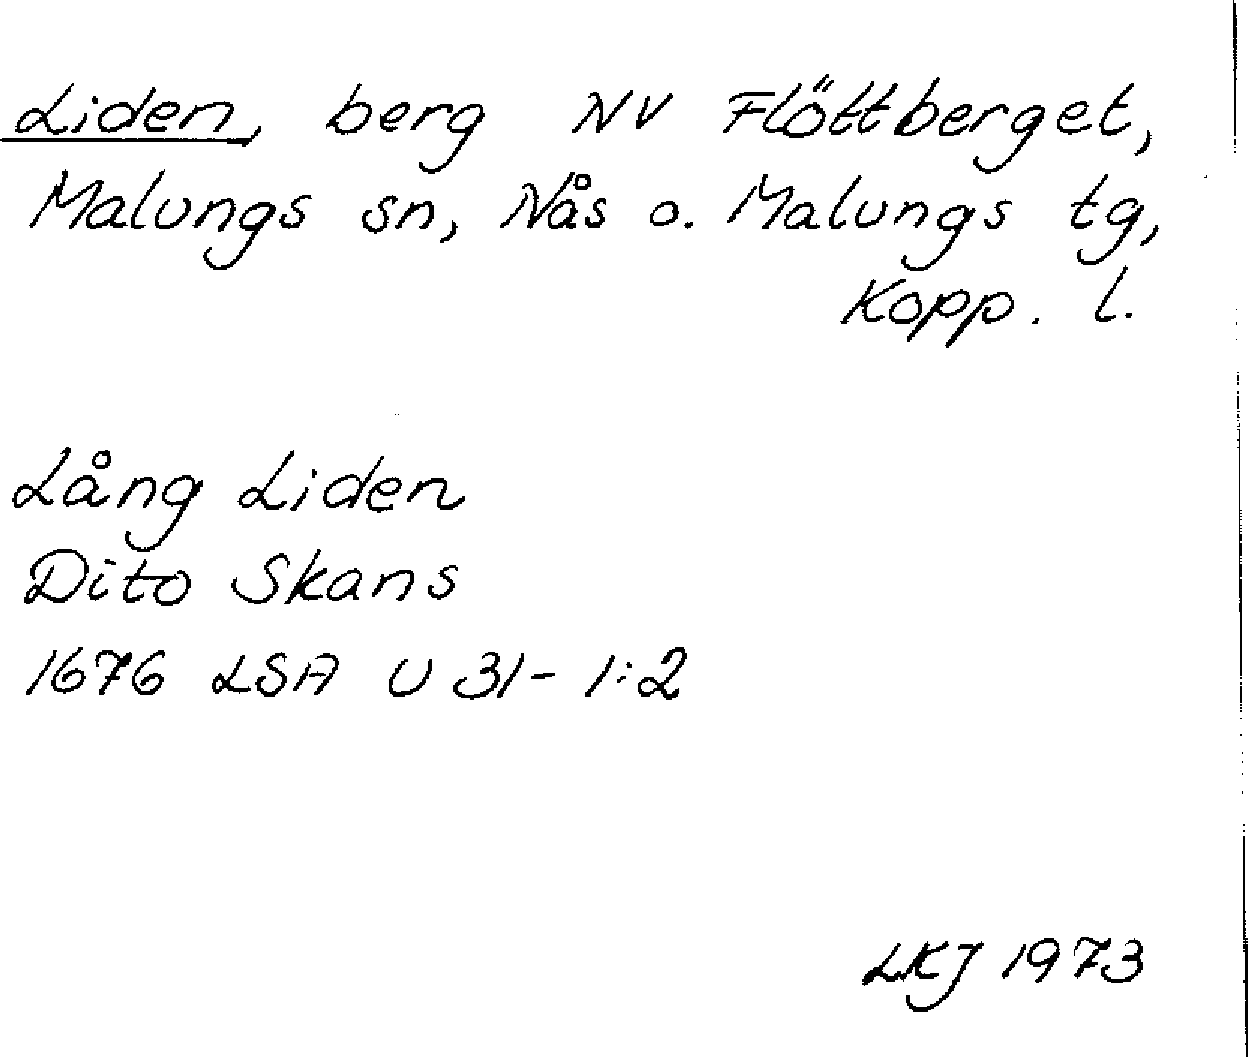 Liden, berg NV Flöttberget,
Malungs sn, Nås o. Malungs tg,
Kopp. l.
Lång Liden
Dito Skans
1676 LSA U 31-1:2
LKJ 1973